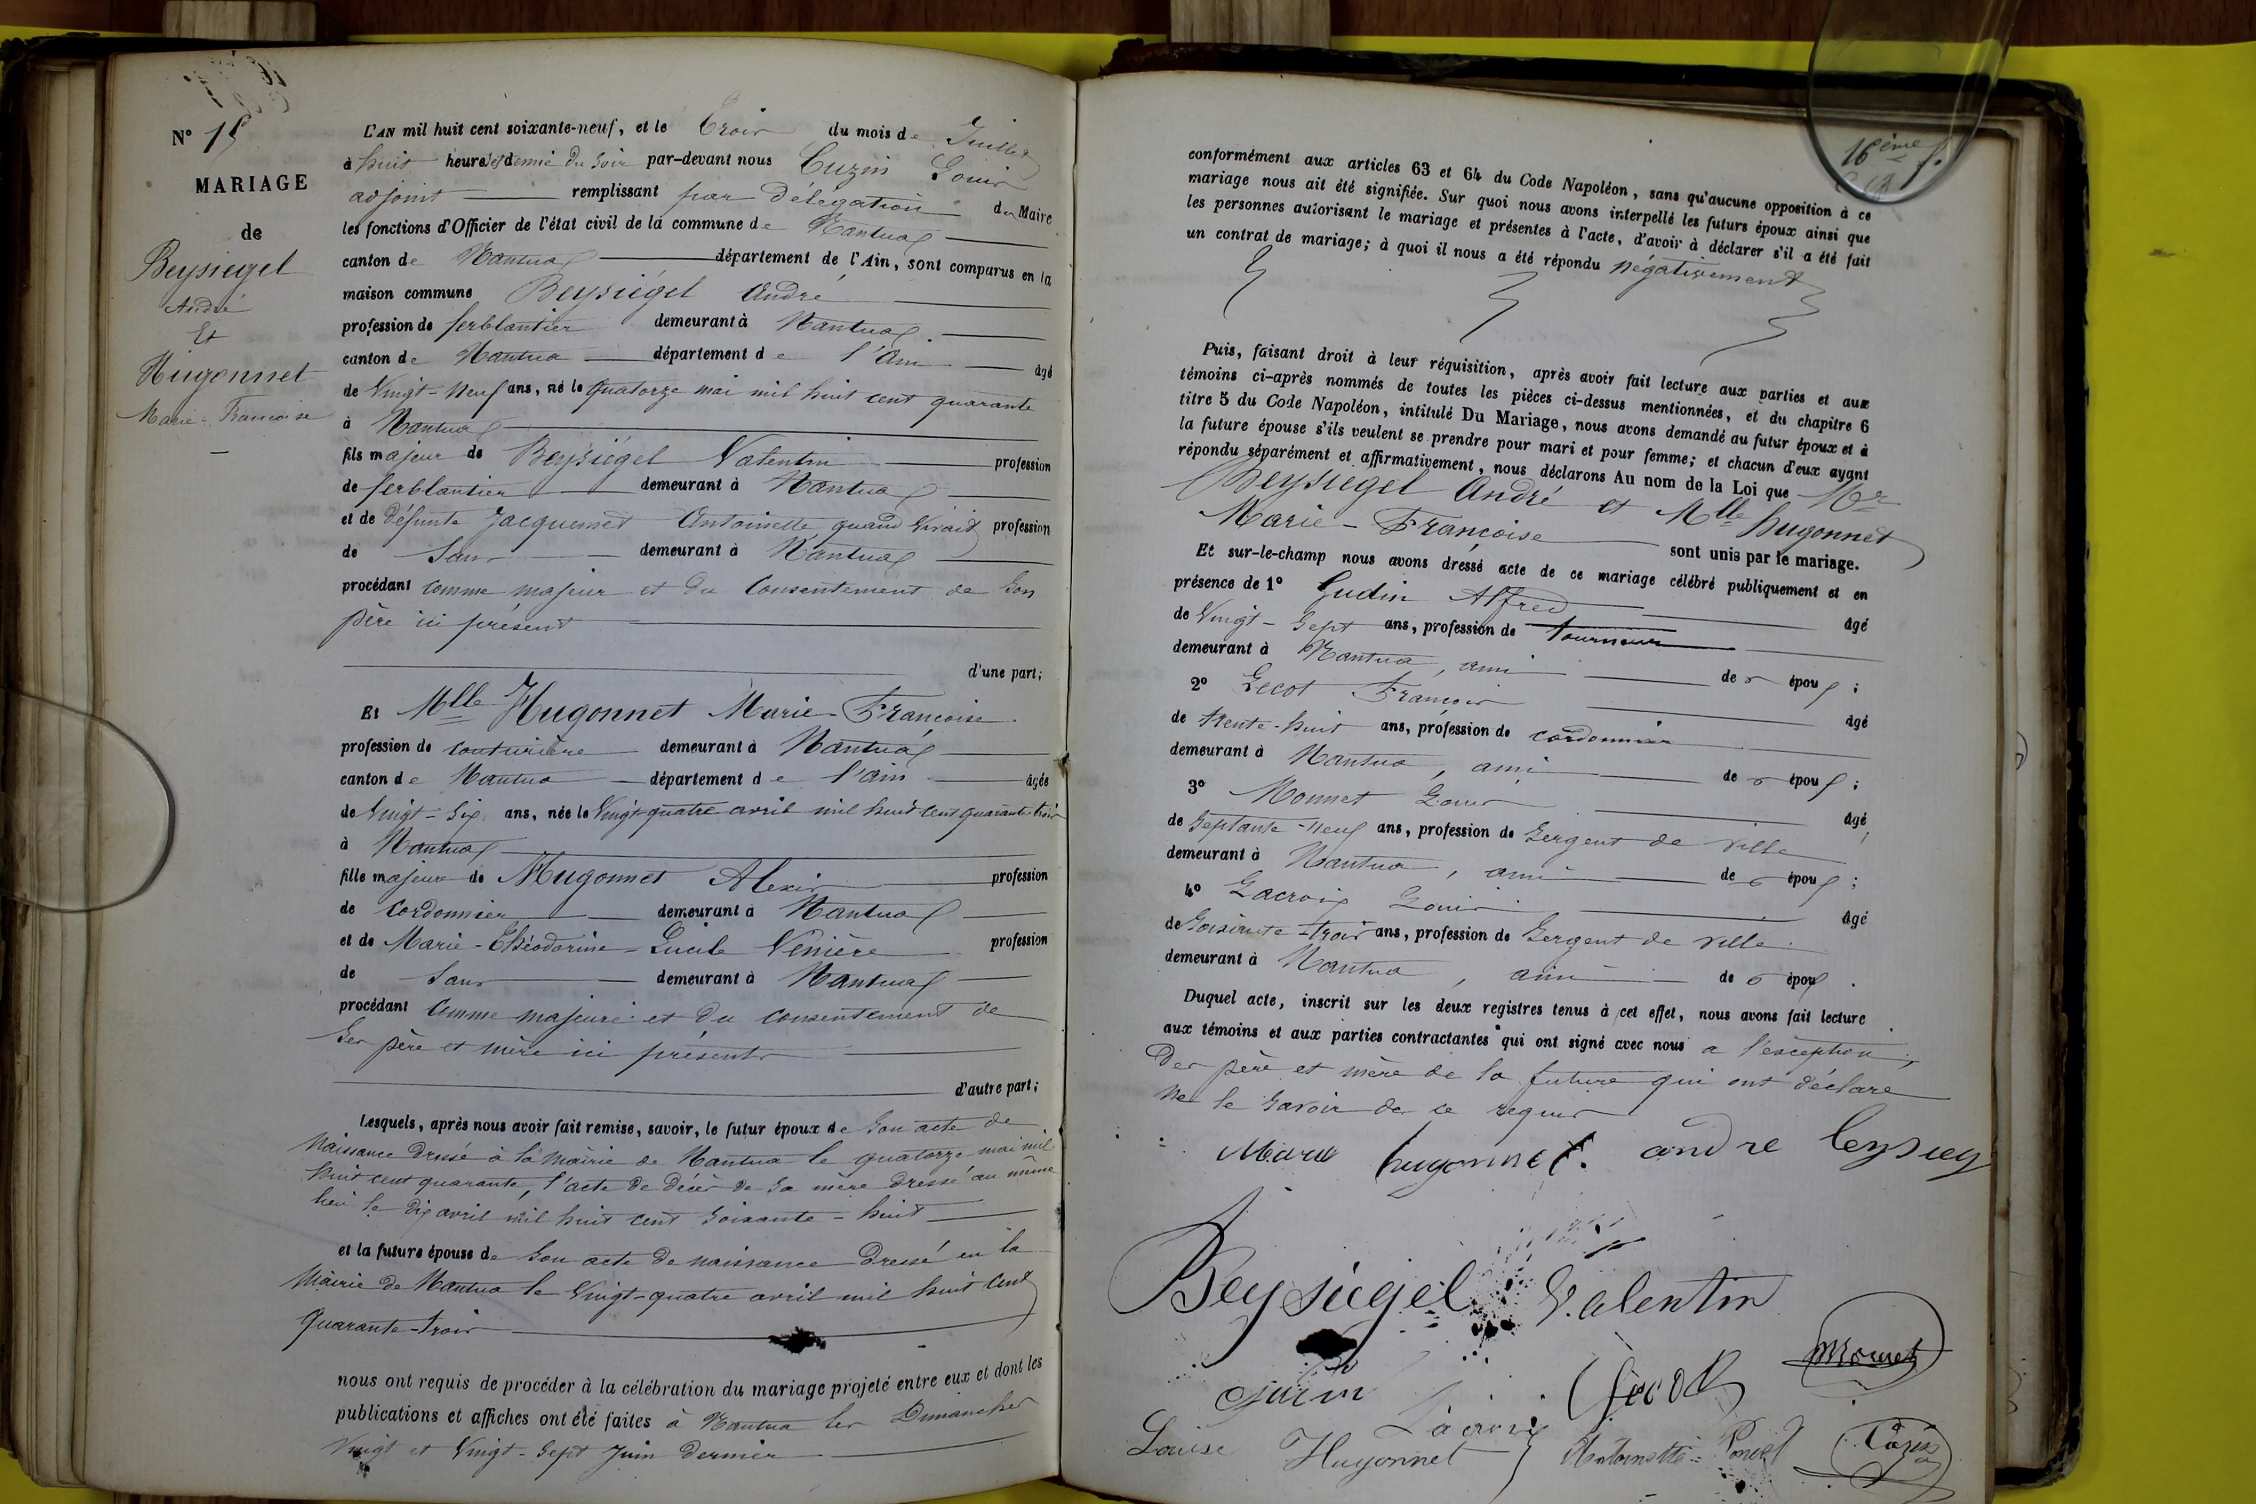 N° 15
MARIAGE
de
Beysiegel
André
Et
Hugonnet
Marie-Françoise
L'AN mil huit cent soixante-neuf, et le Trois du mois de Juillet
à huit heures et demie du soir par-devant nous Cuzin Louis
adjoint remplissant par délégation du Maire
les fonctions d'Officier de l'état civil de la commune de Nantua
canton de Nantua département de l'Ain, sont comparus en la
maison commune Beysiégel André
profession de ferblantier demeurant à Nantua
canton de Nantua département de l'Ain âgé
de Vingt-neuf ans, né le quatorze mai mil huit cent quarante
à Nantua
fils majeur de Beysiégel Valentin profession
de ferblantier demeurant à Nantua
et de défunte Jacquemet Antoinette quand vivait profession
de Sans demeurant à Nantua
procédant comme majeur et du consentement de son
père ici présent
d'une part;
Et Mlle Hugonnet Marie-Françoise
profession de couturière demeurant à Nantua
canton de Nantua département de l'Ain âgée
de Vingt-six ans, née le Vingt-quatre avril mil huit cent quarante-trois
à Nantua
fille majeure de Hugonnet Alexis profession
de cordonnier demeurant à Nantua
et de Marie-Théodorine-Lucile Venière profession
de Sans demeurant à Nantua
procédant comme majeure et du consentement de
ses père et mère ici présents
d'autre part;
Lesquels, après nous avoir fait remise, savoir, le futur époux de son acte de
naissance dressé à la mairie de Nantua le quatorze mai mil
huit cent quarante, l'acte de décès de sa mère dressé au même
lieu le dix avril mil huit cent soixante-huit
et la future épouse de son acte de naissance dressé en la
Mairie de Nantua le Vingt-quatre avril mil huit cent
quarante-trois
nous ont requis de procéder à la célébration du mariage projeté entre eux et dont les
publications et affiches ont été faites à Nantua les Dimanches
Vingt et Vingt-sept Juin dernier
16ème f.
conformément aux articles 63 et 64 du Code Napoléon, sans qu'aucune opposition à ce
mariage nous ait été signifiée. Sur quoi nous avons interpellé les futurs époux ainsi que
les personnes autorisant le mariage et présentes à l'acte, d'avoir à déclarer s'il a été fait
un contrat de mariage; à quoi il nous a été répondu négativement
Puis, faisant droit à leur réquisition, après avoir fait lecture aux parties et aux
témoins ci-après nommés de toutes les pièces ci-dessus mentionnées, et du chapitre 6
titre 5 du Code Napoléon, intitulé Du Mariage, nous avons demandé au futur époux et à
la future épouse s'ils veulent se prendre pour mari et pour femme; et chacun d'eux ayant
répondu séparément et affirmativement, nous déclarons Au nom de la Loi que Mr
Beysiegel André et Mlle hugonnet
Marie-Françoise sont unis par le mariage.
Et sur-le-champ nous avons dressé acte de ce mariage célébré publiquement et en
présence de 1° Gudin Alfred âgé
de Vingt-sept ans, profession de tourneur
demeurant à Nantua, ami des époux;
2° Lecot François âgé
de trente-huit ans, profession de cordonnier
demeurant à Nantua, ami des époux;
3° Monnet Louis âgé
de septante-neuf ans, profession de Sergent de ville
demeurant à Nantua, ami des époux;
4° Lacroix Louis âgé
de soixante-trois ans, profession de Sergent de ville
demeurant à Nantua, ami des époux.
Duquel acte, inscrit sur les deux registres tenus à cet effet, nous avons fait lecture
aux témoins et aux parties contractantes qui ont signé avec nous a l'exception
des père et mère de la future qui ont déclaré
ne le savoir de ce requis
Marie hugonnet. andre
Beysiégel Valentin
Monnet
Lecot
Lacroix
Louise Hugonnet Antoinette Poncet